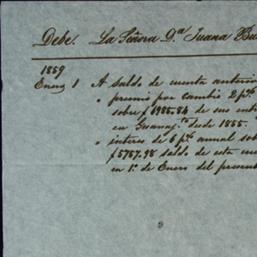 Debe. La Señora D.ª Juana Bu
1859
Enero 1 A saldo de cuenta anterio
" premio por cambio 2 p%
sobre $1985.84 de sus
en Guanaj.to desde 1855.
" interes de 6 p% annual sob
$5757.98 saldo de esta cue
en 1.º de Enero del present